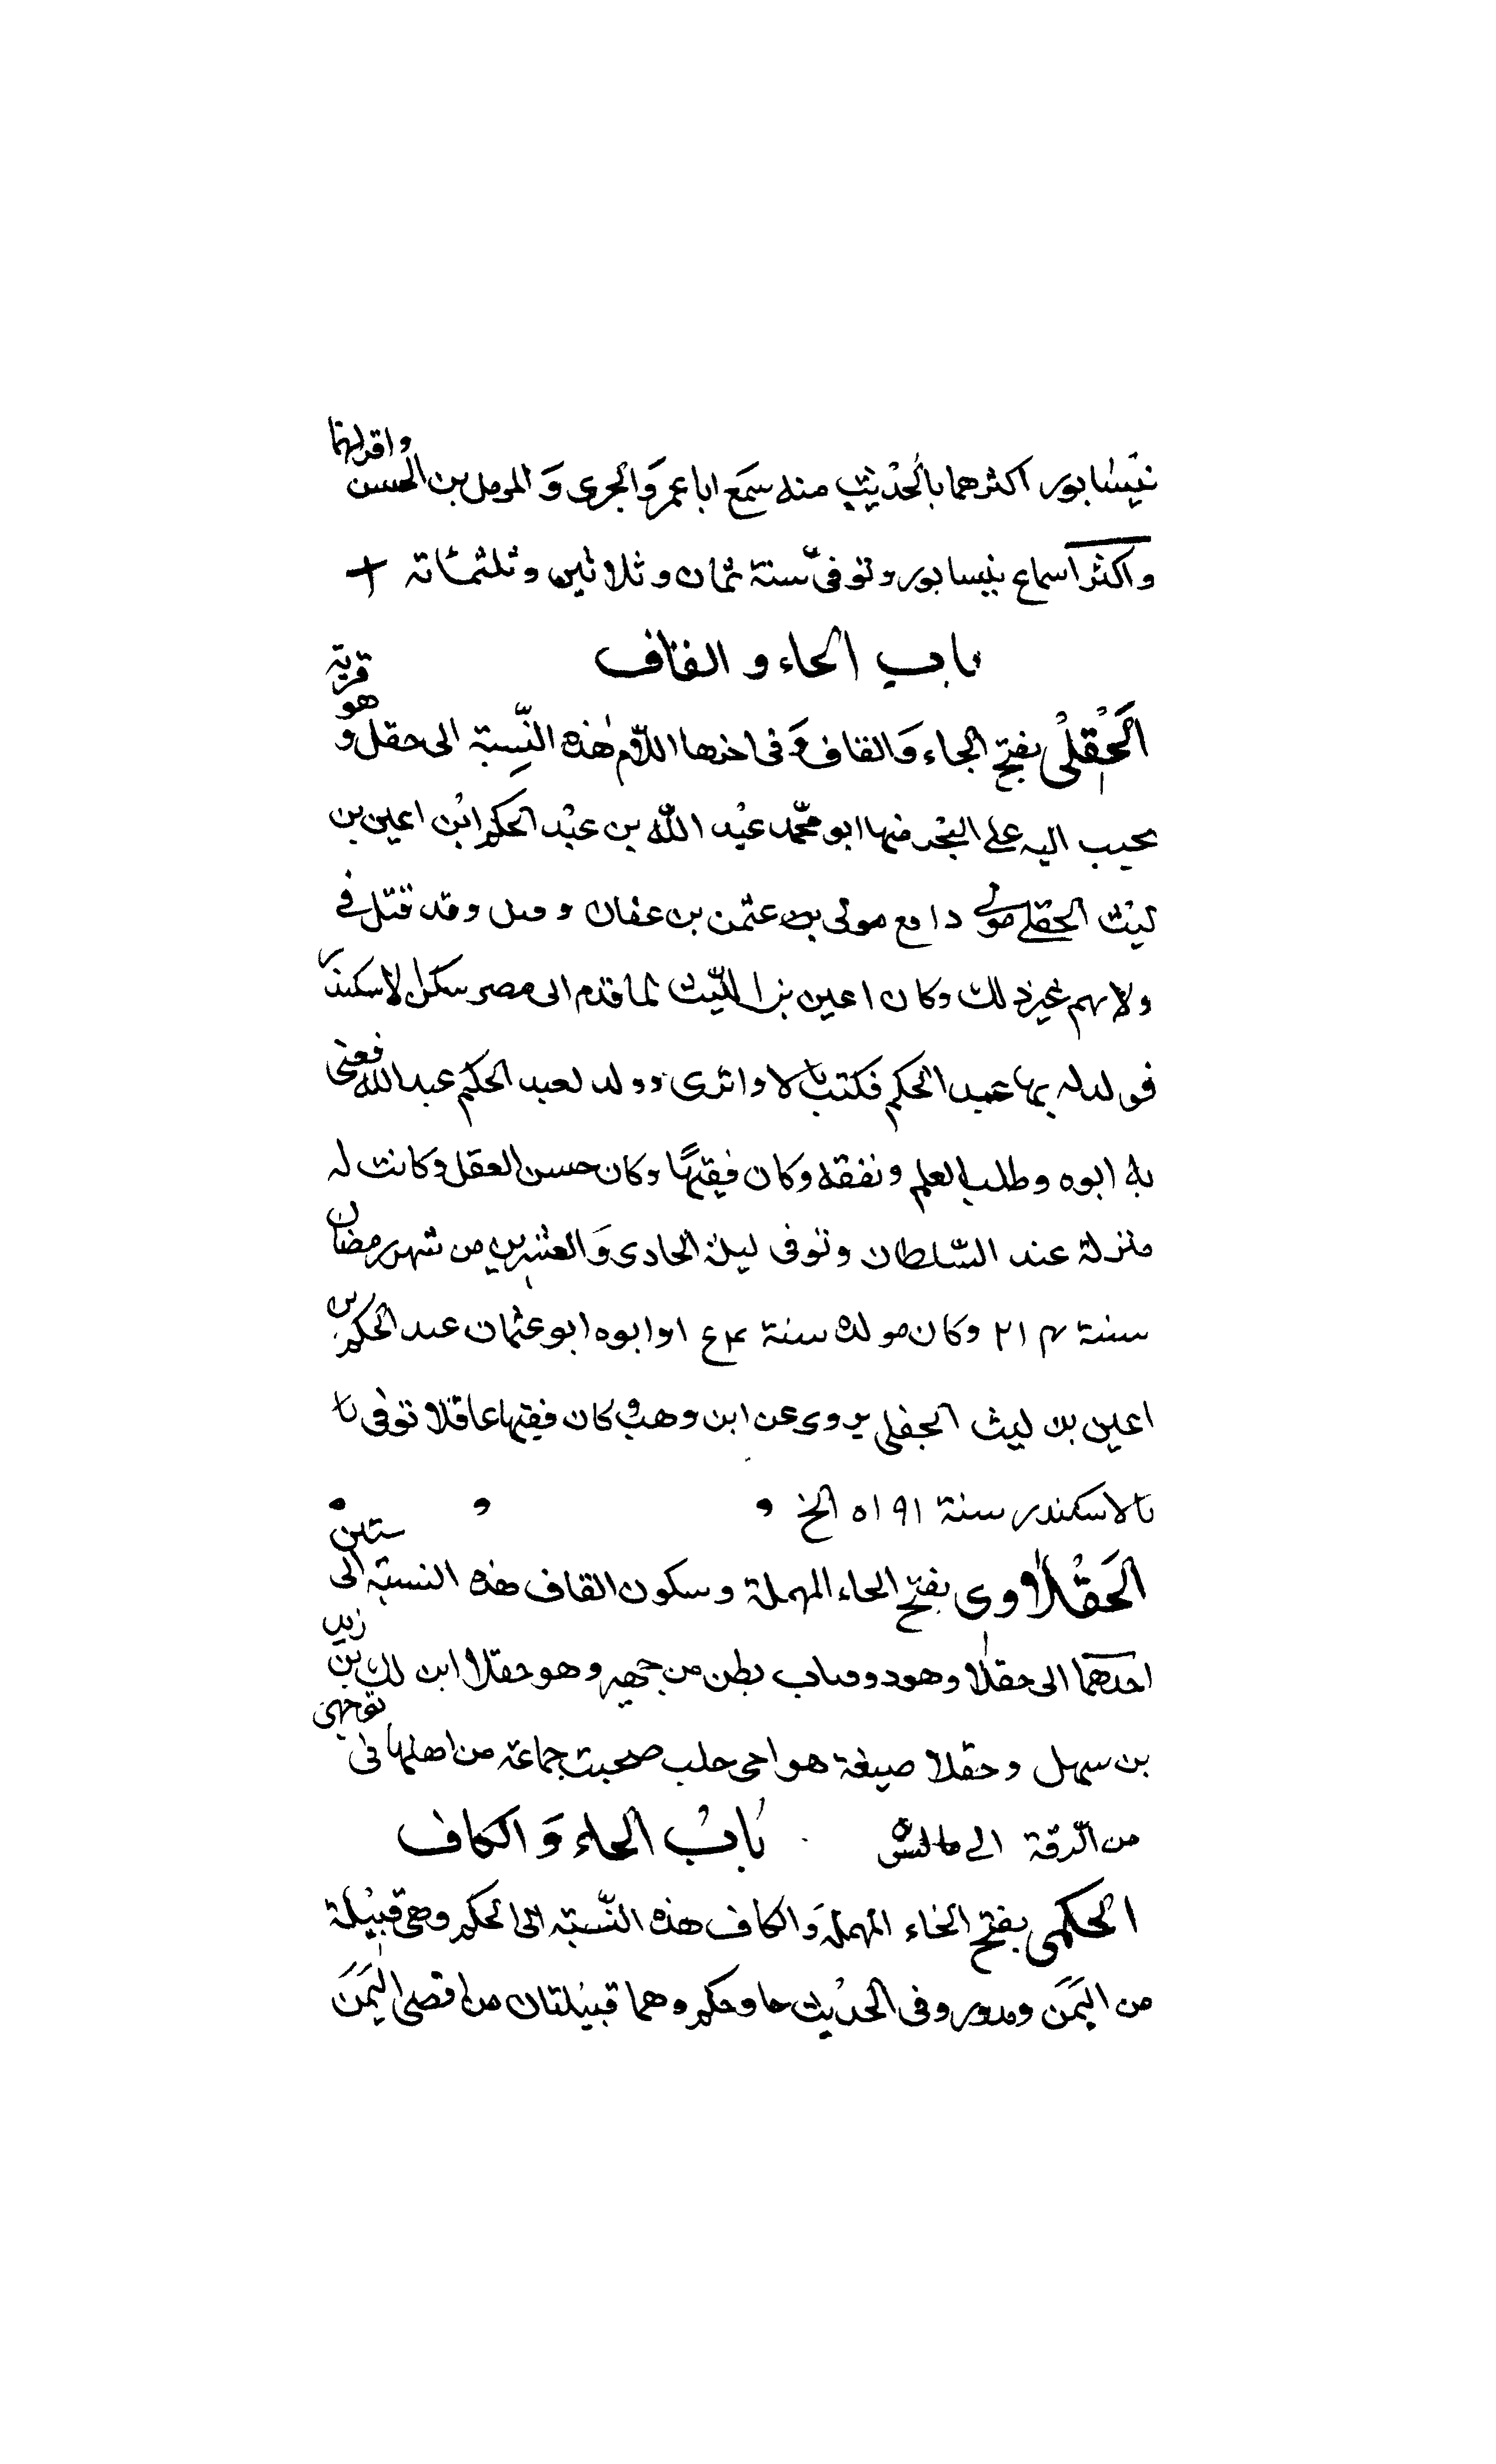 نيسابور اكثرهما بالحديث منه سمع ابا عمرو الجرى و المومل بن الحسن واقرانهما
واكثر اسماع بنيسابور وتوفى سنة ثمان وثلاثين وثلثمائة +
باب الحاء و القاف
الحقلى بفتح الحاء والقاف وفى اخرها اللام هذه النسبة الى حقل و هو قرية
بجيب اليه على البحر منها ابو محمد عبد الله بن عبد الحكم ابن اعين بن
ليث الحقلے مولے دافع مولى بن عثمن بن عفان و قد قتل فى
ولا يهم غير ذلك وكان اعين بن الليث لما قدم الى مصر سكن لاسكندر
فولد له بها عبد الحكم فكتب وولد لعبد الحكم عبد الله فعنى
به ابوه وطلب العلم وتفقه وكان فقيها وكان حسن العقل وكانت له
منزلة عند السلطان وتوفى ليلة الحادى والعشرين من شهر رمضان
سنة ٢١٤ وكان مولده سنة وابوه ابو عثمان عبد الحكم بن
اعين بن ليث الحقلى يروى عن ابن وهب و كان فقيها عاقلا توفى با
بالاسكندر سنة ١٩١٥ الخ
الحقلاوى بفتح الحاء المهملة وسكون القاف هذه النسبة الى ستين
احدهما الى حقلا وهو بطن من وهو حقلا ابن بن زيد
بن سهل وحقلا صيغة هواحى حلب صحبت جماعة من اهلها فى توجهى
من الرقة الى
باب الحاء و الكاف
الحكمى بفتح الحاء المهملة والكاف هذه النسبة الى الحكم وهى قبيلة
من اليمن وفى الحديث حا وحكم وهما قبيلتان من اقصى اليمن